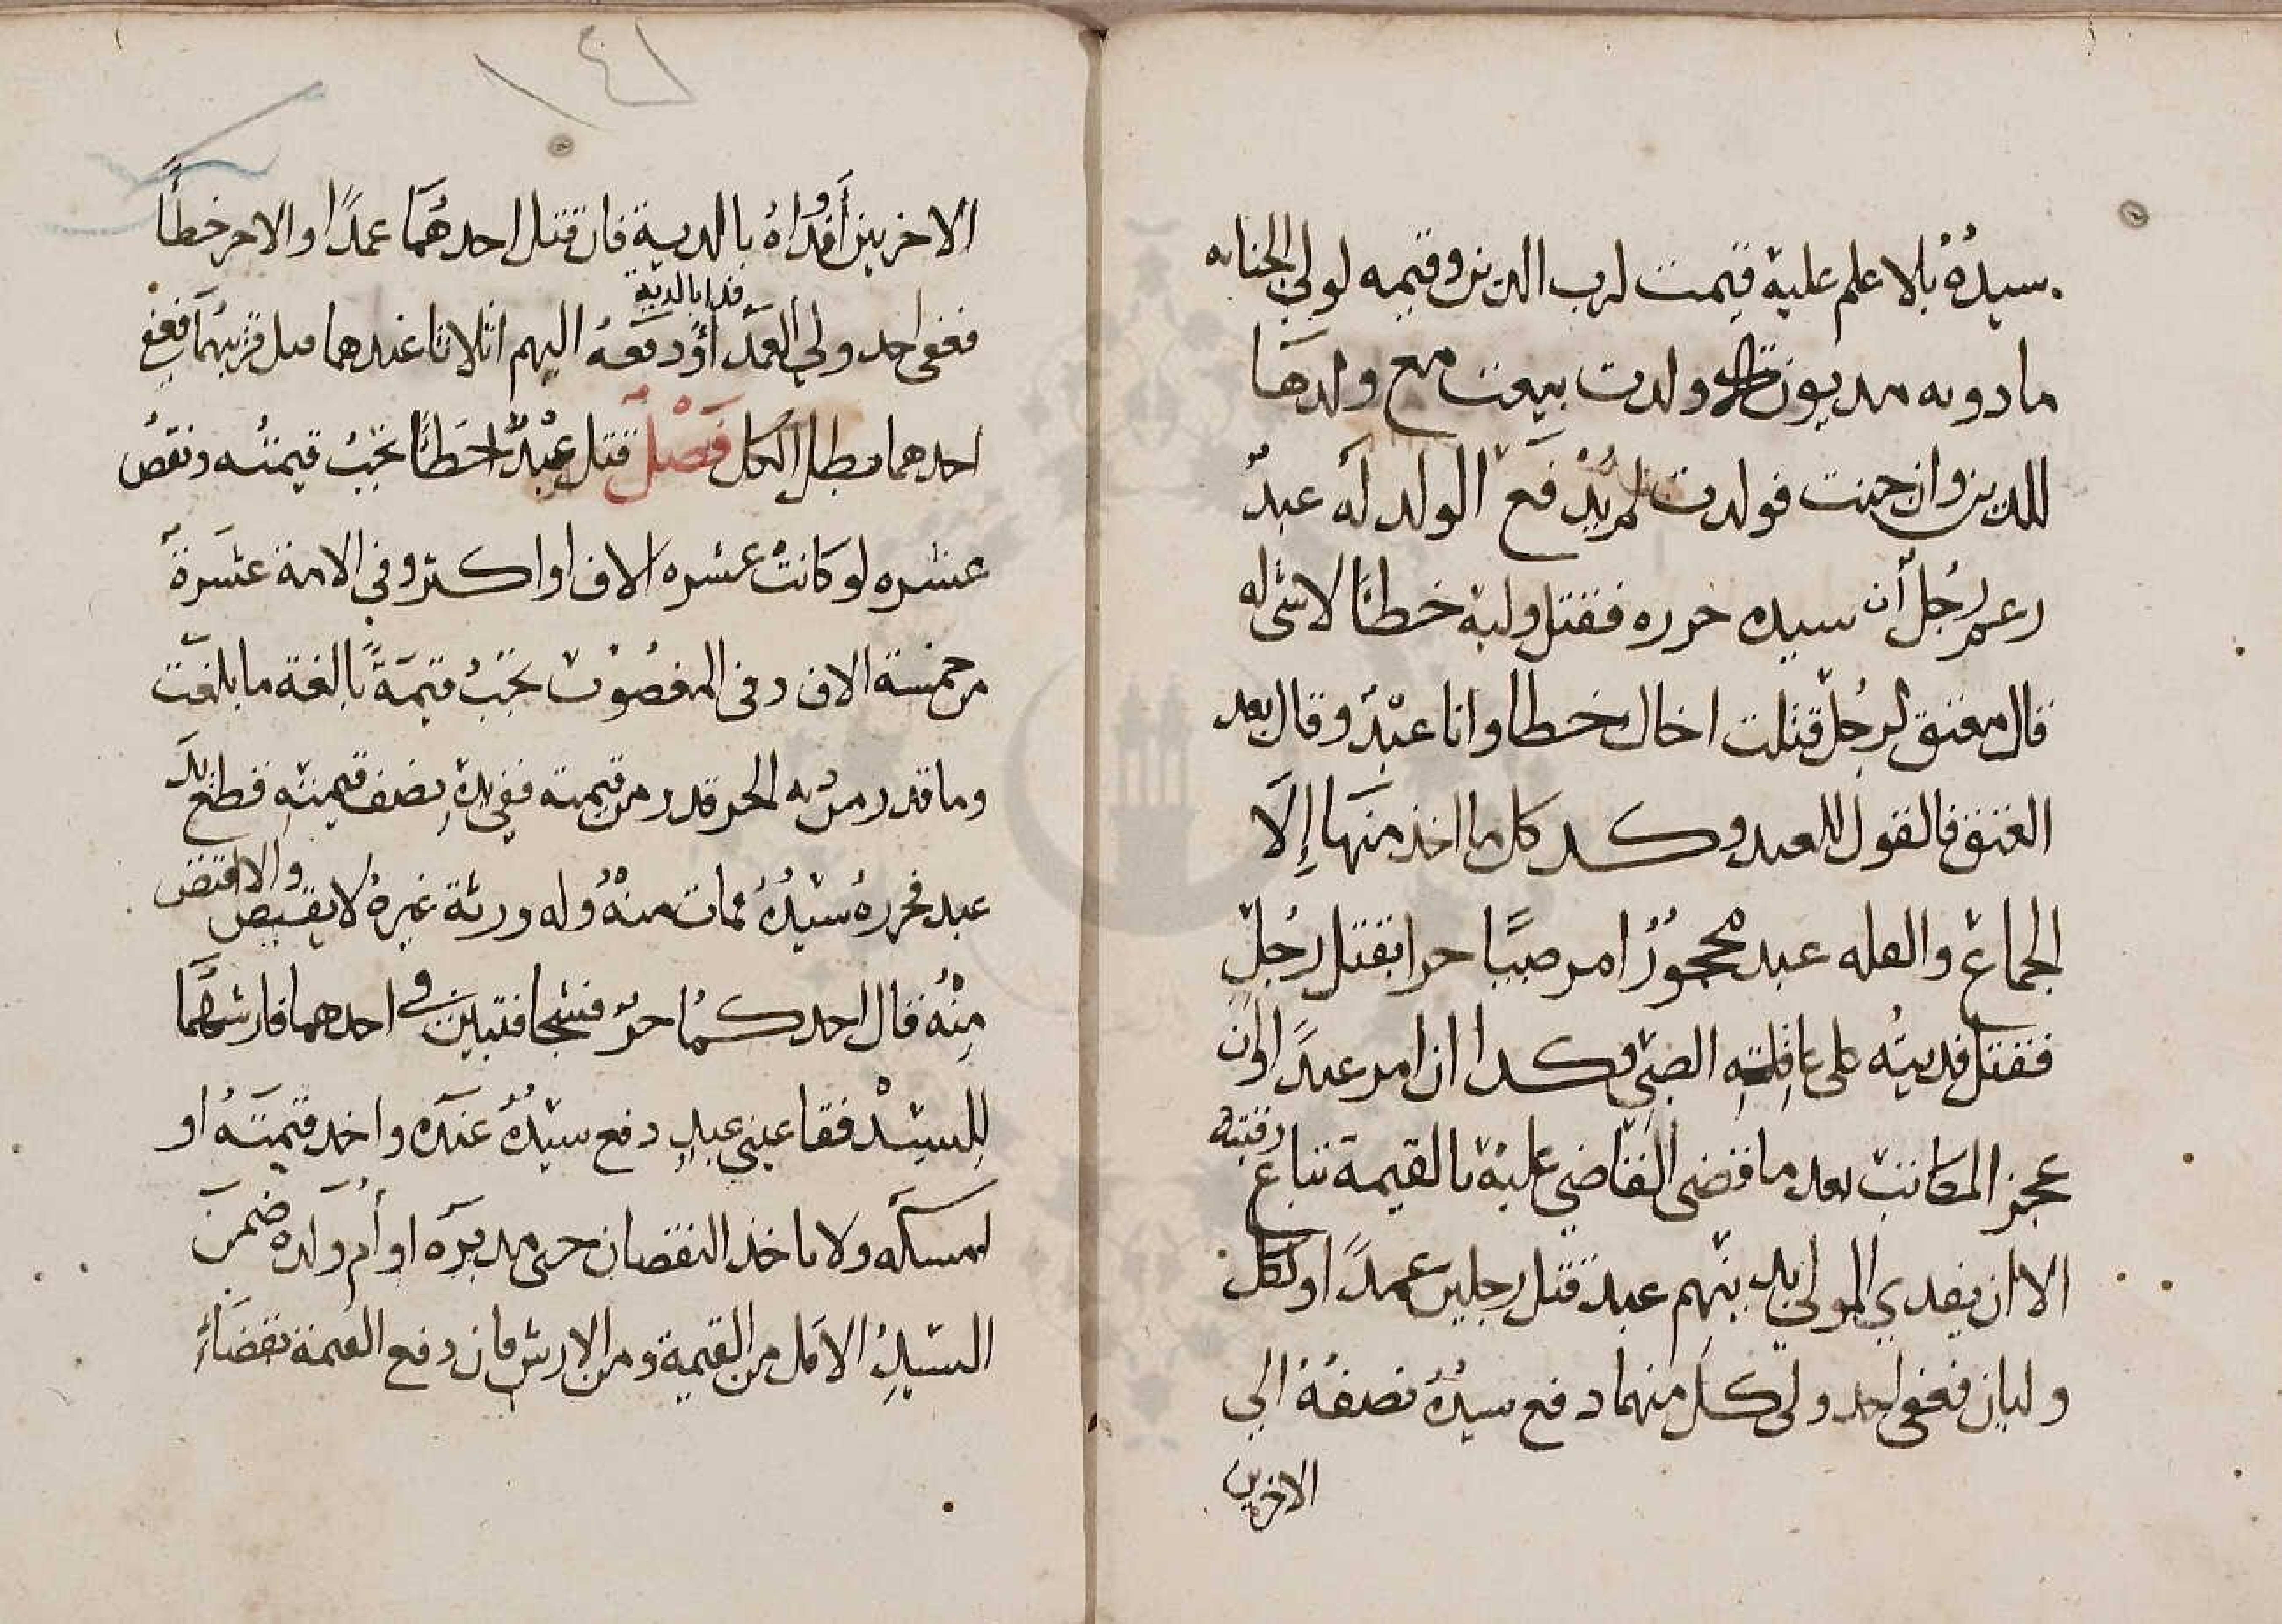 سيدُهُ بلا علم عليه قيمت لرب الدين وقيمه لولي الجنايه
ماذونه مديونة ولدت بيعت مع ولدها
للدين وان جنت فولدت لم يدفع الولد له عبدٌ
زعم رجل أن سيده حرره فقتل وليه خطئًا لا شي له
قال معتق لرجل قتلت اخاك خطا وانا عبدٌ وقال بعد
العتق فالقول للعبد وكذا كل ما اخذ منها إلا
الجماع والغله عبد محجورٌ امر صبيًا حرا بقتل رجلٍ
فقتل فديته على عاقلته الصبي وكدا ان امر عبدًا وان
عجز المكاتب بعد ما قضى القاضي عليه بالقيمة تباع رقبته
الا ان يفدي المولى بديتهم عبد قتل رجلين عمدًا ولكل
وليان فعفى احد ولي كل منهما دفع سيدُهُ نصفهُ الي
الاخرين
١٤١
الاخرين أو فداهُ بالدية فان قتل احدهُمَا عمدًا والاخر خطأً
فعفى احد ولي العمد فدا بالدية أو دفعهُ اليهم اثلاثا عبدهما قتل قريبهُمَا فعفى
احدهما بطل الكل فَصْلٌ قتل عبدٌ خَطَئًا تجبُ قيمتُه ونقصُ
عشره لو كانت عشره الاف او اكثر وفي الامة عشرةً
من خمسة الاف وفى المغصُوب تجبُ قيمَةً بالغة ما بلغت
وما قدر من ديه الحر قدر من قيمته ففي يدِهِ نصف قيمتهِ قطع يد
عبد فحررهُ سيّدُهُ فمات منهُ وله ورثة غيرهُ لا يقتص والا اقتص
مِنْهُ قال احدكُما حرٌ فشجا فبين في احدهما فارشهُمَا
للسيّد فقا عيني عبدٍ دفع سيّدُهُ عبدَه واخد قيمتَهُ او
امسكَه ولا ياخذ النقصان جنى مدبرَه او أُم ولده ضمنَ
السّيدِ الاقل من القيمة ومن الارش فان دفع القيمة بقضَاءٍ